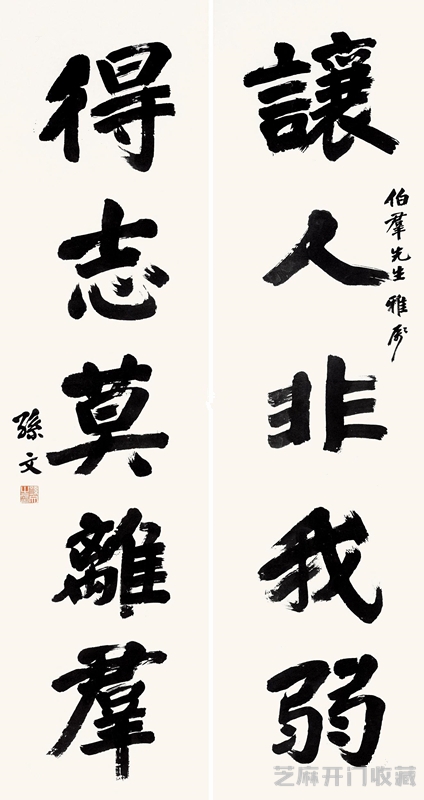 伯羣先生雅屬
讓人非我弱
得志莫離羣
孫文
芝麻开门收藏